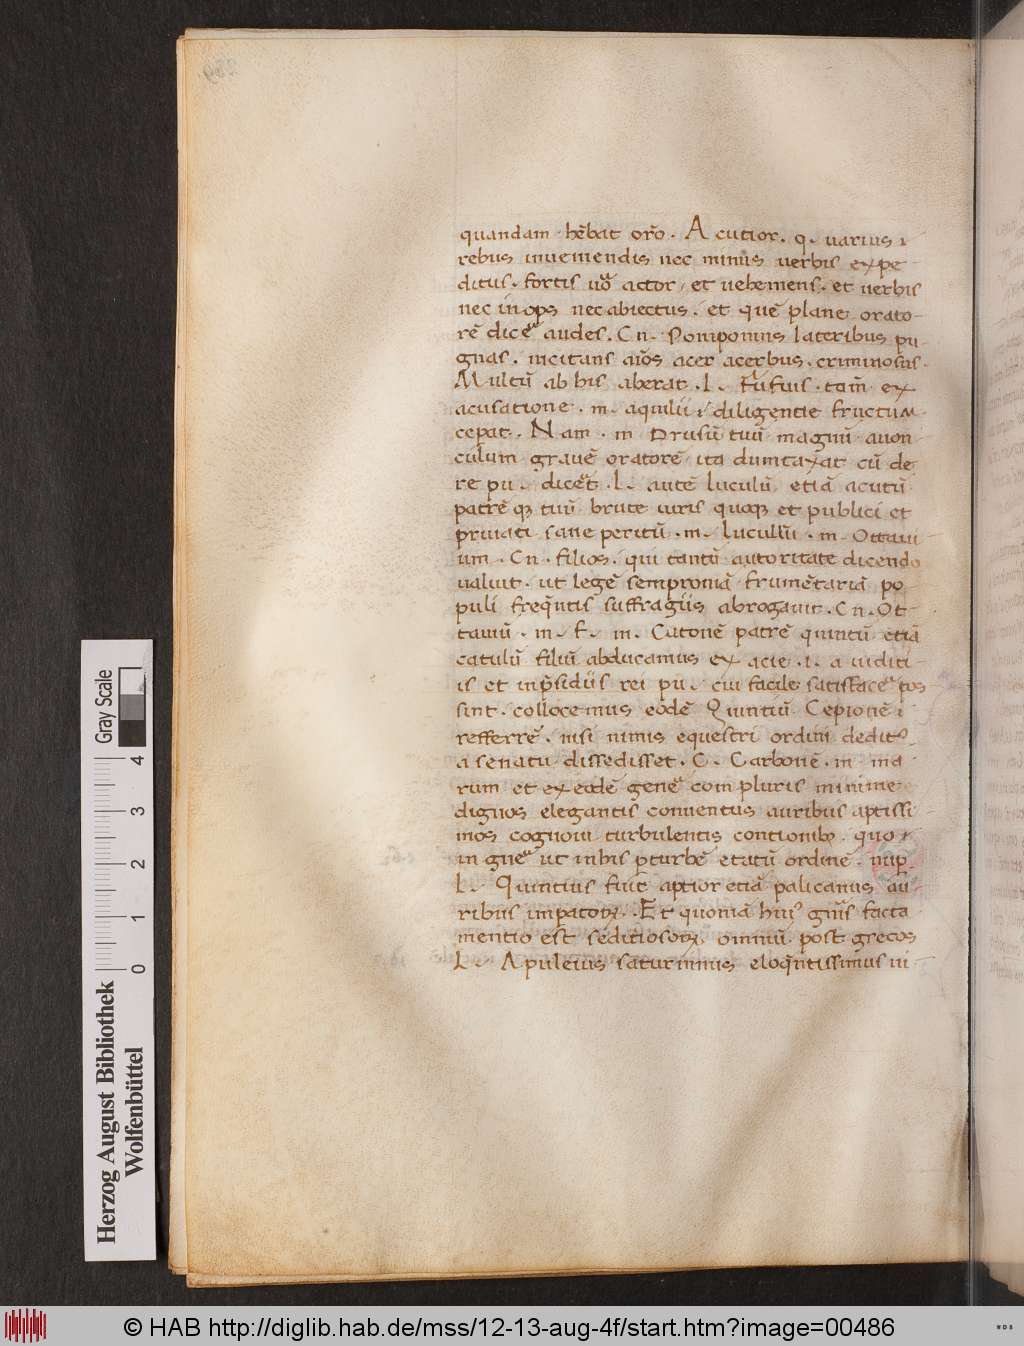 quandam hēbat orō. Acutior. q. uarius ı
rebus inueniendis nec minus uerbis expe-
ditus. fortis uo actor, et uehemens. et uerbis
nec inops nec abiectus. et quē plane orato-
rē dicē audes. Cn. Pomponius lateribus pu-
gnas. incitans aīos acer acerbus. criminosus.
Multū ab his aberat. l. fufius. tam̄ ex
acusatione. m. aquilii ı diligentie fructum
cepat. Nam. m Drusū tuū magnū auon-
culum grauē oratorē ita dumtaxat cū de
re pu. dicet. l. autē luculū etiā acutū
patrē qȝ tuū brute iuris quoqȝ et publici et
priuati sane peritū. m. lucullū. m. Ottaui
um. Cn. filios. qui tantū autoritate dicendo
ualuit. ut legē semproniā frumētariā po
puli freq̄ntis suffragiis abrogauit. Cn. Ot-
tauiū. m. f. m. Catonē patrē quintū etiā
catulū filiū abducamus ex acie. i. a iuditi-
is et inp̄sidiis rei pu. cui facile satisfacē pos
sint. collocemus eodē Quintiū Cepionē ı
refferrē. nisi nimis equestri ordini dedit9
a senatu dissedisset. C. Carbonē. m ma
rum et ex eodē genē com pluris minime
dignos elegantis conuentus auribus aptissi
mos cognoui turbulentis contionibȝ. quo ı
in gnē ut in his pturbē etatū ordinē. nup.
l. Quintius fuit aptior etiā palicanus au-
ribus impatoꝝ. Et quoniā hui9 gnīs facta
mentio est seditiosoꝝ omniū post grecos
L. Apuleius saturninus eloq̄ntissimus ui-
Herzog August Bibliothek
Wolfenbüttel
0 1 2 3 4
Gray Scale
© HAB http://diglib.hab.de/mss/12-13-aug-4f/start.htm?image=00486